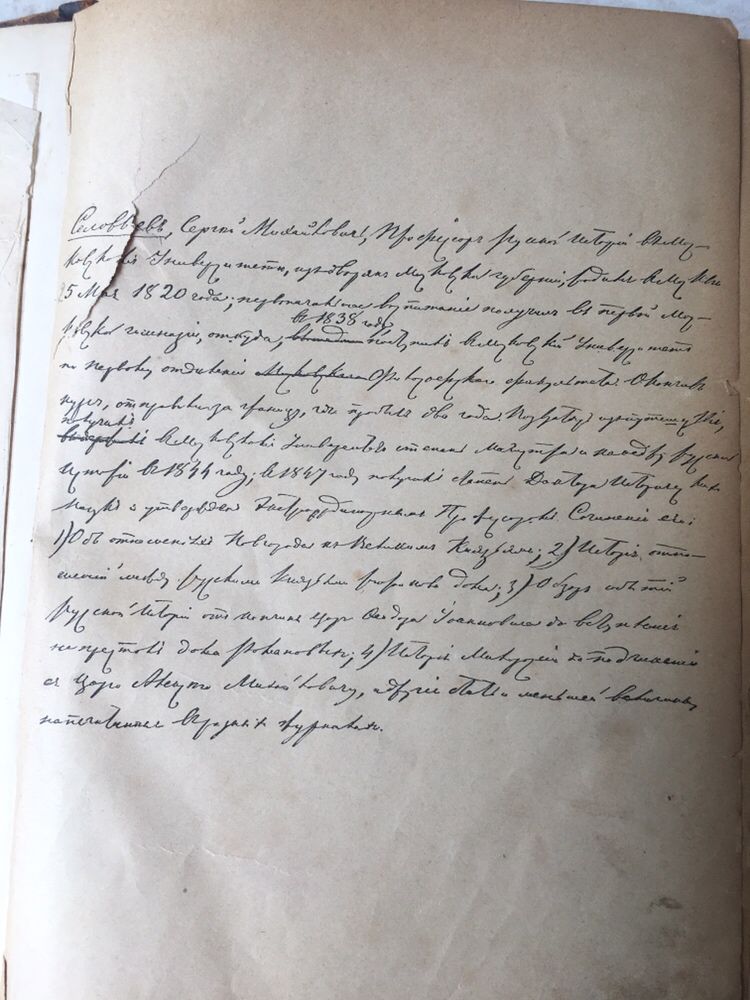 Соловьевъ, Сергѣй Михайловичъ, Профессоръ русской Исторіи въ Мо-
сковскомъ Университетѣ, изъ дворянъ Московской губерніи, родился въ Москвѣ
5 Мая 1820 года; первоначальное воспитаніе получилъ въ первой Мо-
сковской гимназіи, откуда, въ 1838 году поступилъ въ Московскій Университетъ
по первому отдѣленію Философскаго факультета. Окончивъ
курсъ, отправился за границу, гдѣ пробылъ два года. По возвращеніи изъ путешествія,
получилъ въ Московскомъ Университетѣ степень Магистра и каѳедру русской
Исторіи въ 1844 году; въ 1847 году получилъ степень Доктора Историческихъ
наукъ и утвержденъ Экстраординарнымъ Профессоромъ. Сочиненія его:
1) Объ отношеніяхъ Новгорода къ Великимъ Князьямъ; 2) Исторія отно-
шеній между русскими Князьями Рюрикова дома; 3) Обзоръ событій
русской Исторіи отъ кончины царя Ѳедора Іоанновича до вступленія
на престолъ дома Романовыхъ; 4) Исторія Малороссіи до подчиненія
ея Царю Алексѣю Михайловичу, и другія статьи меньшей величины,
напечатанныя въ разныхъ журналахъ.